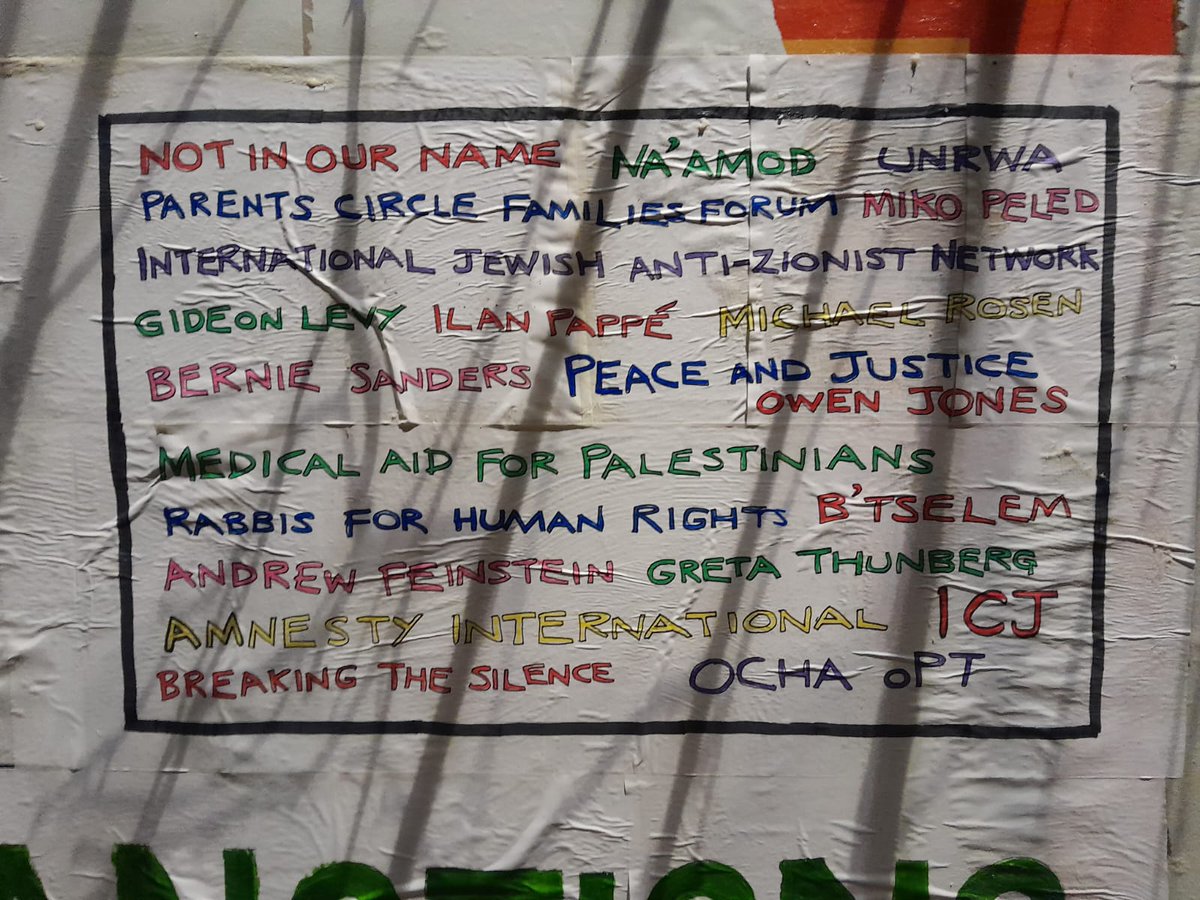 NOT IN OUR NAME NA'AMOD UNRWA
PARENTS CIRCLE FAMILIES FORUM MIKO PELED
INTERNATIONAL JEWISH ANTI-ZIONIST NETWORK
GIDEON LEVY ILAN PAPPÉ MICHAEL ROSEN
BERNIE SANDERS PEACE AND JUSTICE
OWEN JONES
MEDICAL AID FOR PALESTINIANS
RABBIS FOR HUMAN RIGHTS B'TSELEM
ANDREW FEINSTEIN GRETA THUNBERG
AMNESTY INTERNATIONAL ICJ
BREAKING THE SILENCE OCHA oPT